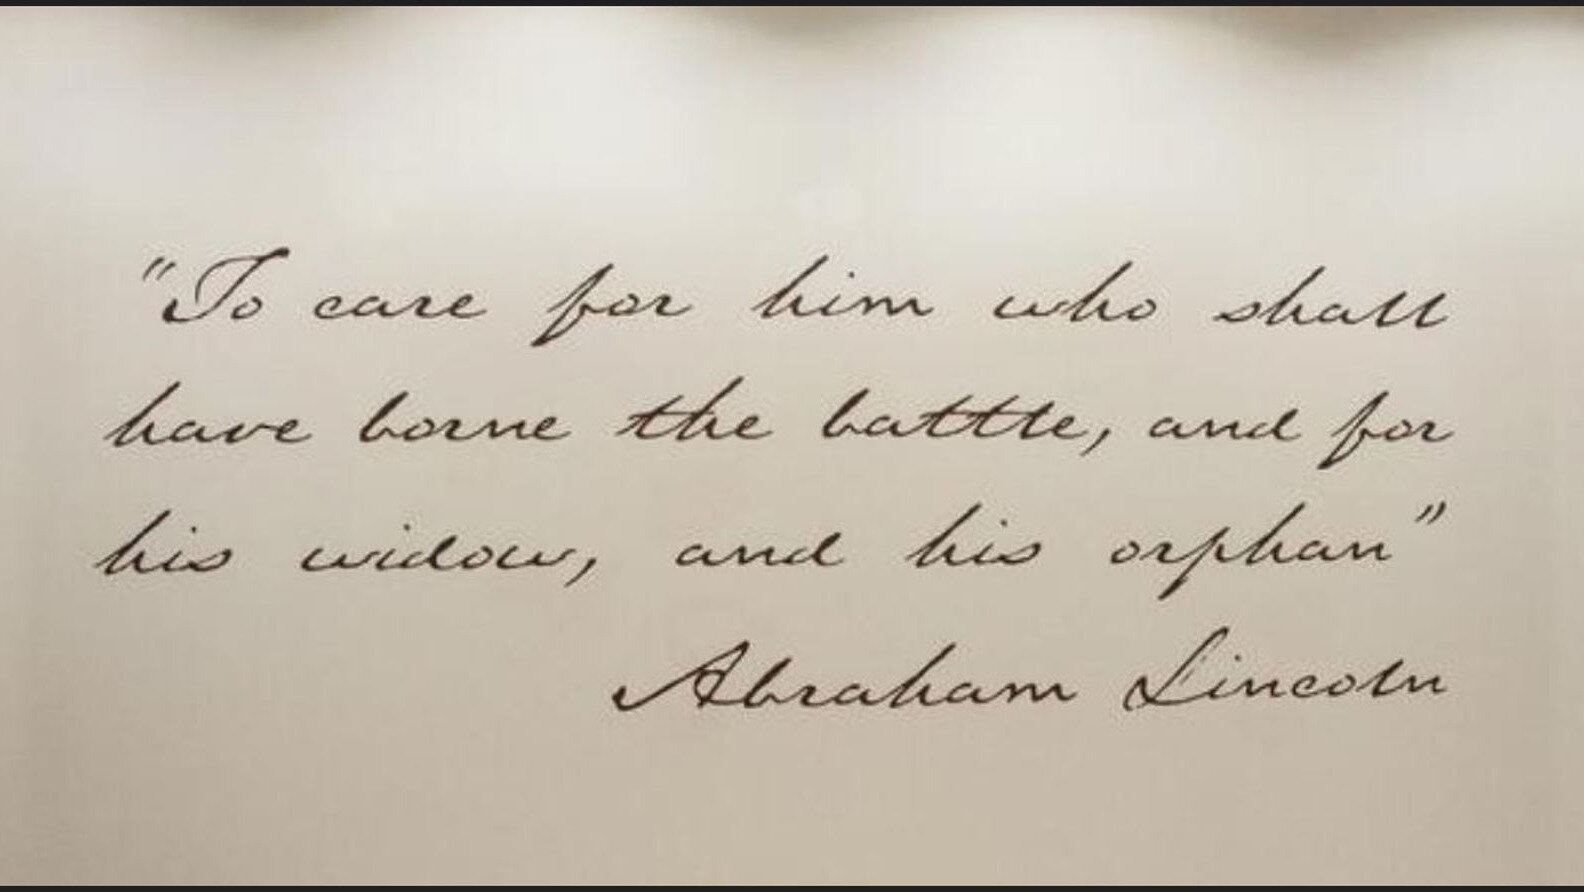 "To care for him who shall
have borne the battle, and for
his widow, and his orphan"
Abraham Lincoln